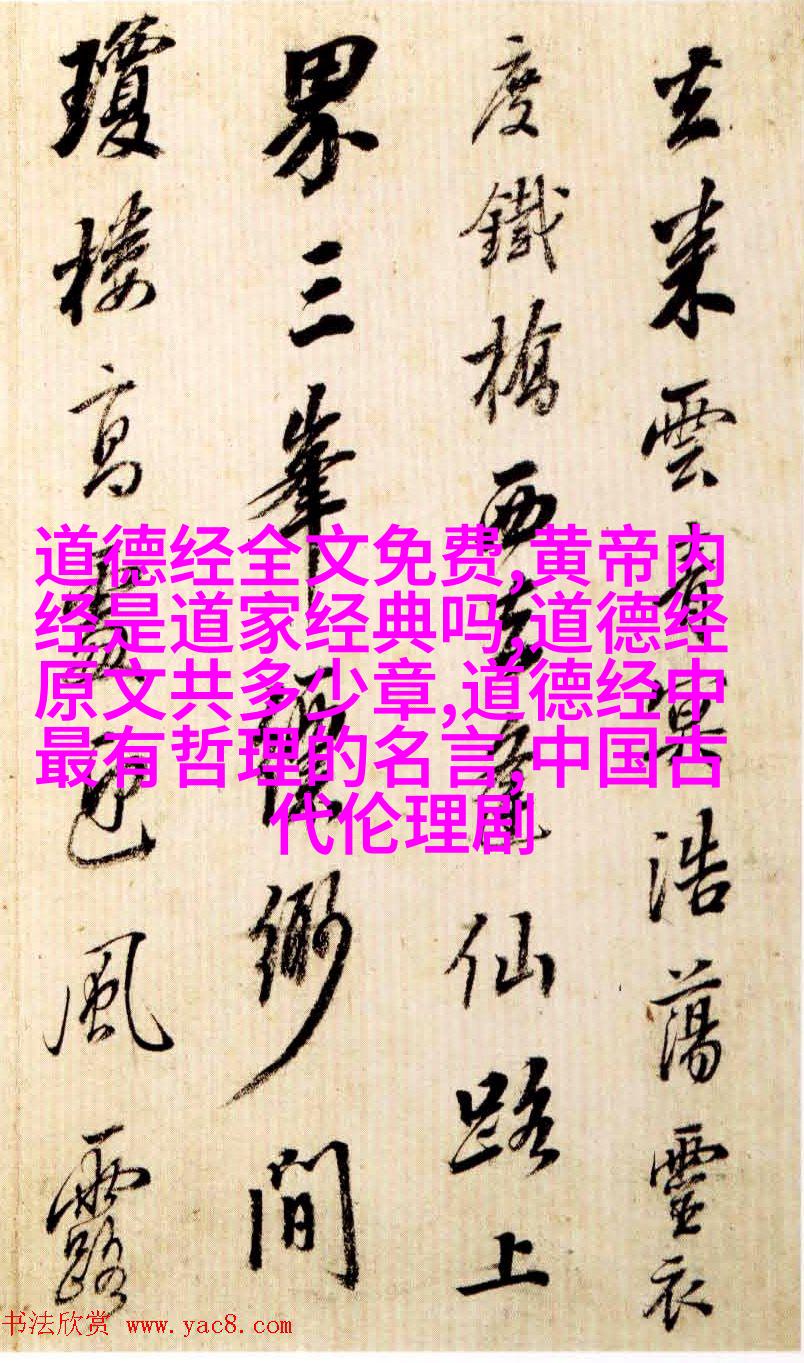 来雲冥浩蕩靈衣
度鐵橋西仙路上
界三峯緲間
瓊樓高風露
道德经全文免费,黄帝内
经是道家经典吗,道德经
原文共多少章,道德经中
最有哲理的名言,中国古
代伦理剧
书法欣赏 www.yac8.com